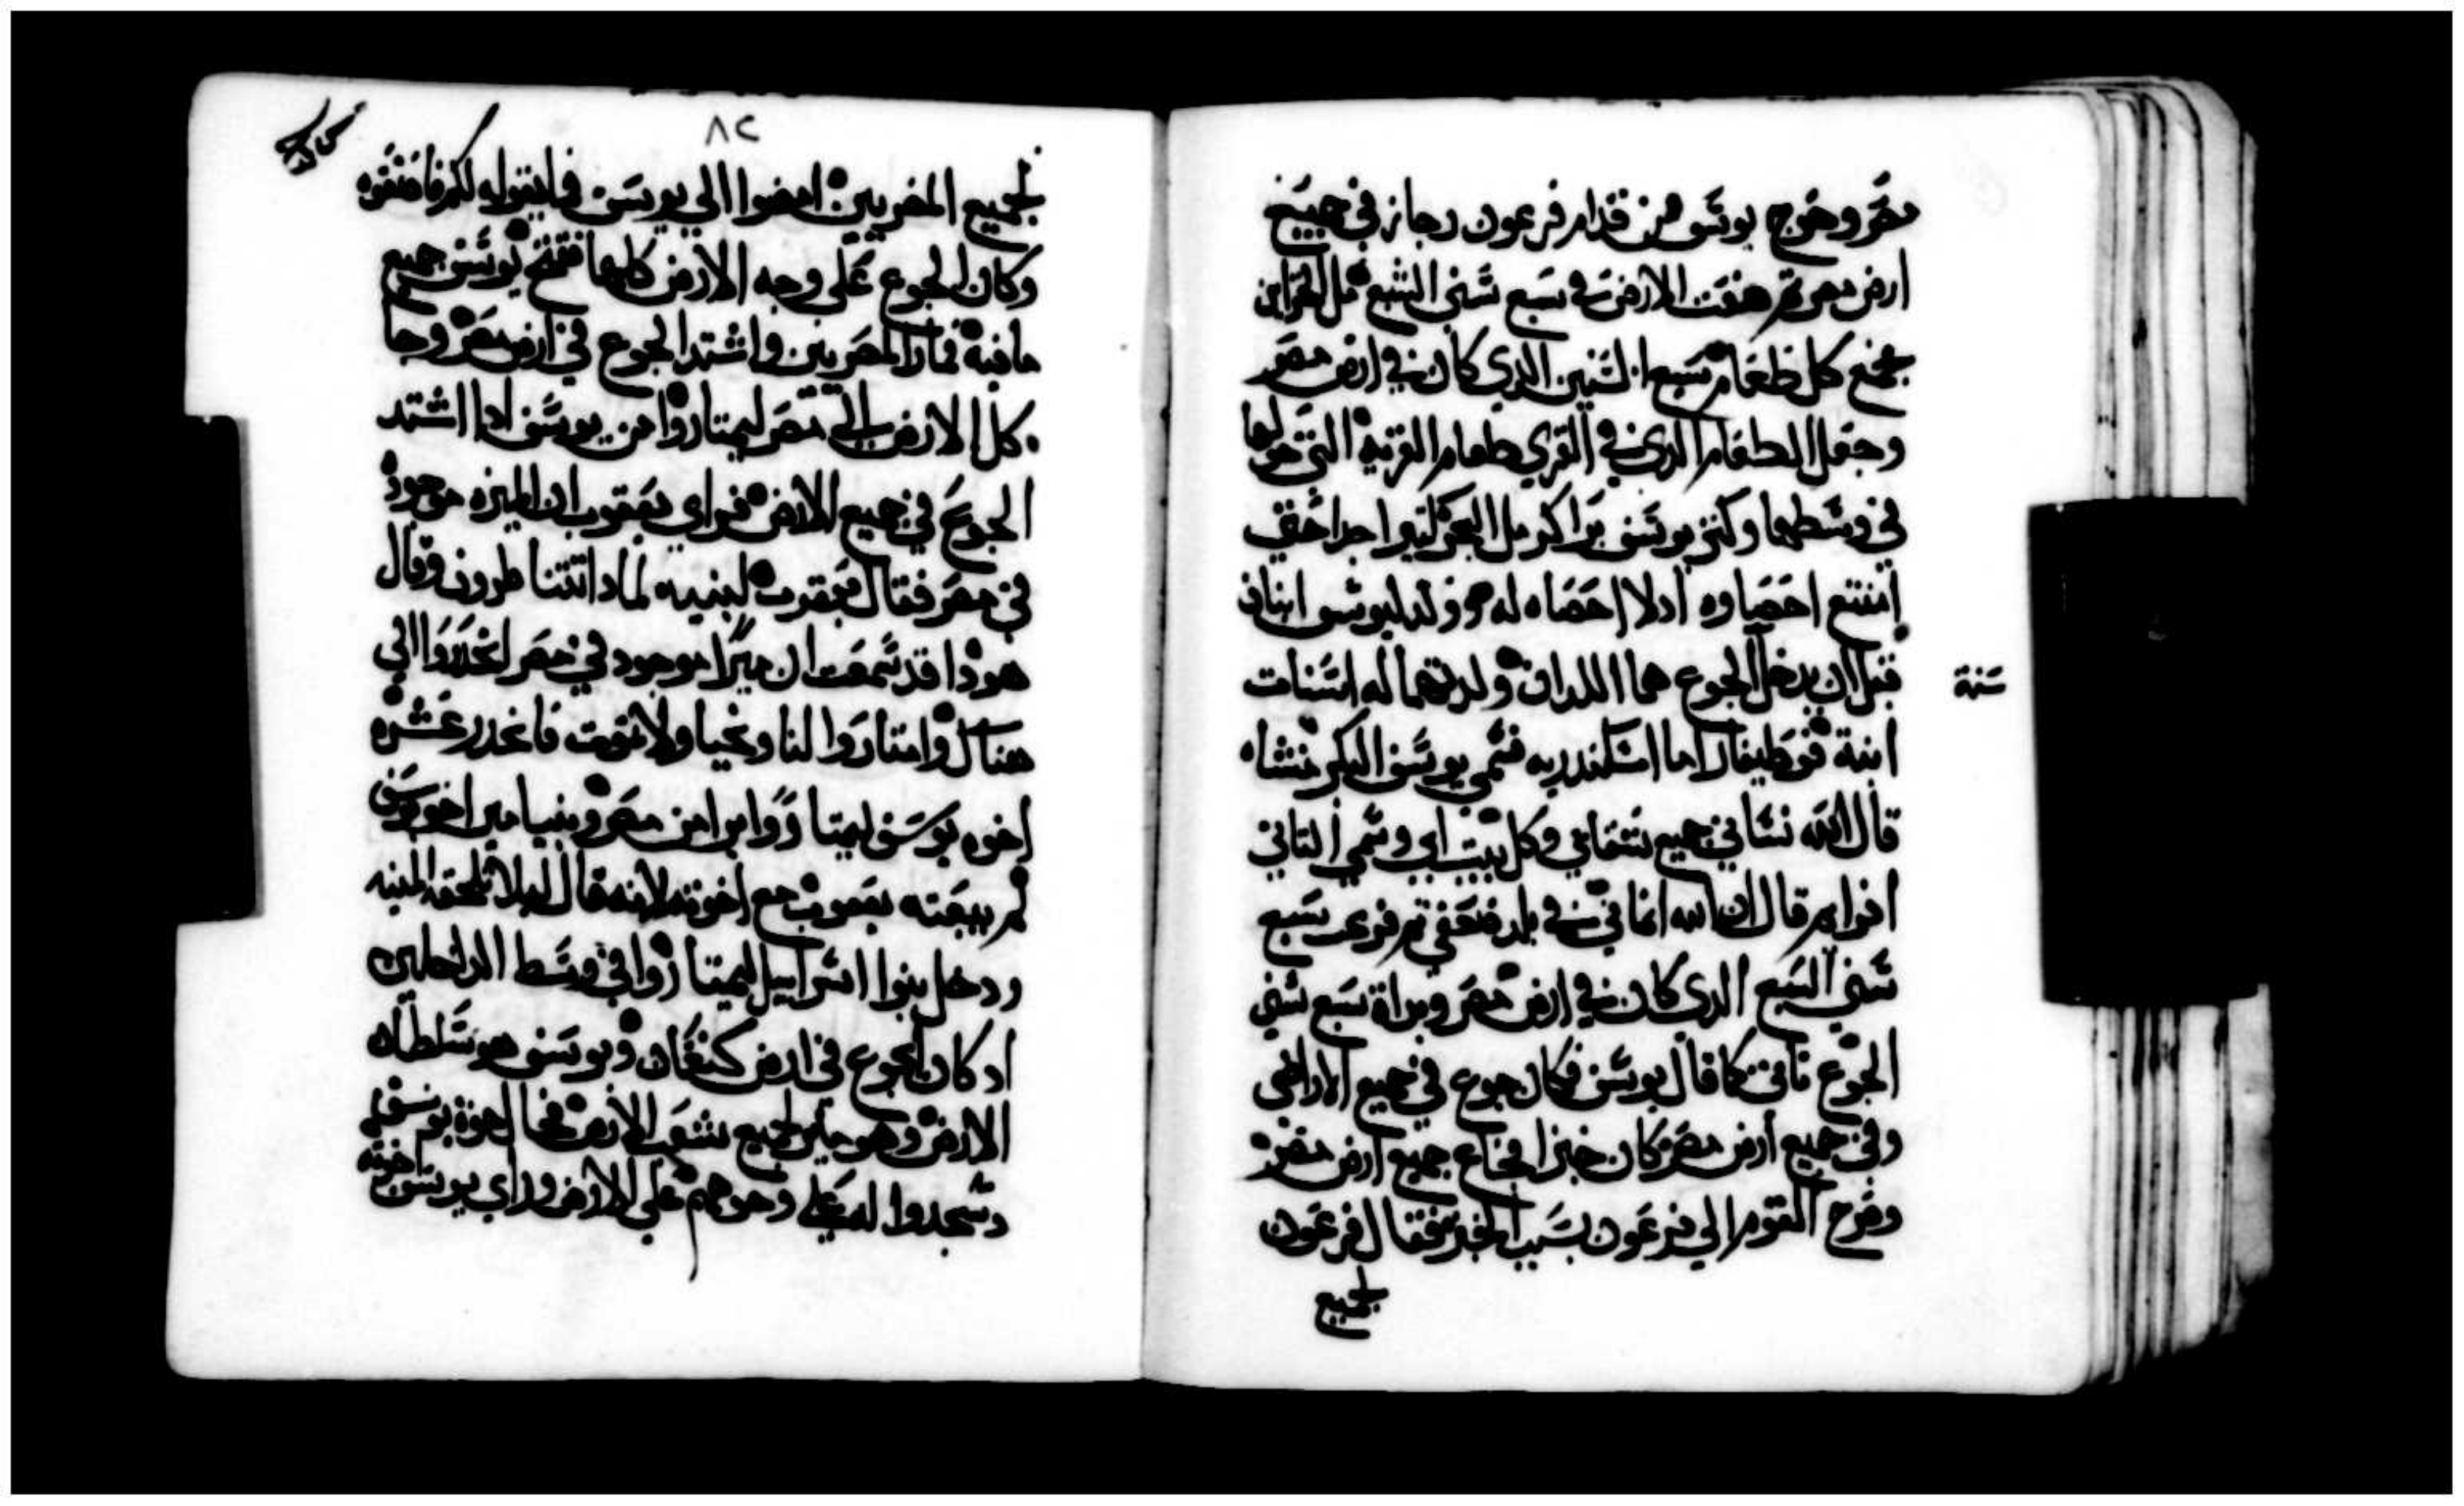 مصر وخرج يوسف من قدام فرعون وجاز في جميع
ارض مصر ثم صنعت الارض في سبع سني الشبع مل الخزاين
فجمع كل طعام سبع السنين الذي كان في ارض مصر
وجعل الطعام الذي في القري طعام القرية التي حولها
في وسطها وكنز يوسف برا كرمل البحر كثيرا جدا حتي
امتنع احصاوه اذ لا احصاه له وولد ليوسف ابنان
قبل ان يدخل الجوع هما اللذان ولدتهما له اسنات
سنة
ابنة فوطيفار امام اسكندريه فسمي يوسف البكر منشاه
قال الله نساني جميع شقاي وكل بيت ابي وسمي الثاني
افرايم قال ان الله انماني في بلد ضعفي ثم فرغت سبع
سني الشبع الذي كان في ارض مصر وبدات سبع سني
الجوع تاتي كما قال يوسف فكان جوع في جميع الاراضي
وفي جميع ارض مصر كان خبزا فجاع جميع ارض مصر
وصرخ القوم الي فرعون بسبب الخبز فقال فرعون
لجميع
٨٢
لجميع المصريين امضوا الي يوسف فما يقوله لكم فاصنعوه
وكان الجوع علي وجه الارض كلها ففتح يوسف جميع
ما فيه فمار المصريين واشتد الجوع في ارض مصر وجا
كل الارض الي مصر ليمتاروا من يوسف اذا اشتد
الجوع في جميع الارض فراي يعقوب ان الميره موجود
في مصر فقال يعقوب لبنيه لماذا انتنا طرون وقال
هوذا قد سمعت ان ميرا موجود في مصر انحدروا الي
هناك وامتاروا لنا ونحيا ولا نموت فانحدر عشره
اخوه يوسف ليمتاروا برا من مصر وبنيامين اخو يوسف
لم يبعثه يعقوب مع اخوته لانه قال ليلا تلحقه المنيه
ودخل بنوا اسراييل ليمتاروا في وسط الداخلين
اد كان الجوع في ارض كنعان ويوسف هو سلطان
الارض وهو يمير لجميع شعب الارض فجا اخوة يوسف
وسجدوا له علي وجوههم علي الارض وراي يوسف اخوته